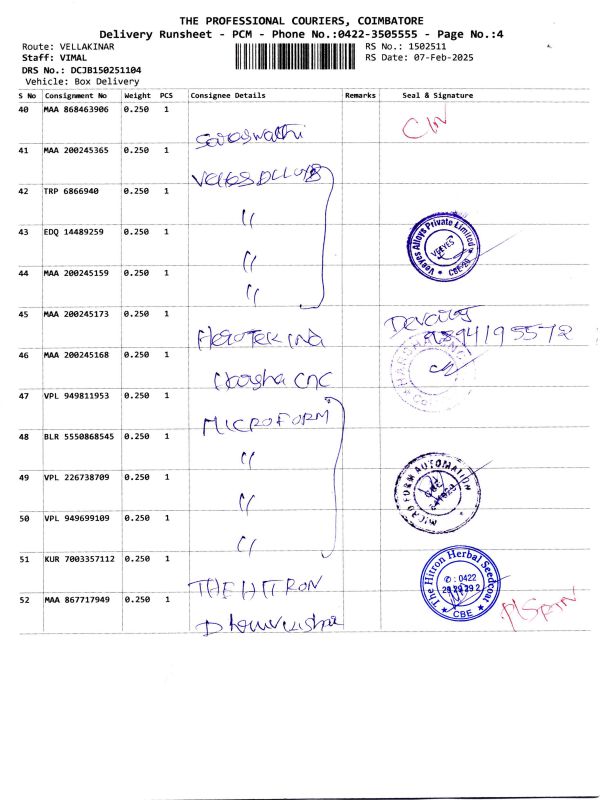 THE PROFESSIONAL COURIERS, COIMBATORE
Delivery Runsheet - PCM - Phone No.:0422-3505555 - Page No.:4
Route: VELLAKINAR
RS No.: 1502511
Staff: VIMAL
RS Date: 07-Feb-2025
DRS No.: DCJB150251104
Vehicle: Box Delivery
S No Consignment No Weight PCS Consignee Details Remarks Seal & Signature
40 MAA 868463906 0.250 1
Saraswathi
41 MAA 200245365 0.250 1
42 TRP 6866940 0.250 1
"
43 EDQ 14489259 0.250 1
Veeyes Alloys Private Limited
VEEYES
CBE-29
"
44 MAA 200245159 0.250 1
"
45 MAA 200245173 0.250 1
46 MAA 200245168 0.250 1
Harsha CNC
47 VPL 949811953 0.250 1
MICROFORM
48 BLR 5550868545 0.250 1
"
49 VPL 226738709 0.250 1
MICRO FORM AUTOMATION
"
50 VPL 949699109 0.250 1
"
51 KUR 7003357112 0.250 1
THE HITRON
The Hitron Herbal Seedcoat
✆ : 0422
CBE
52 MAA 867717949 0.250 1